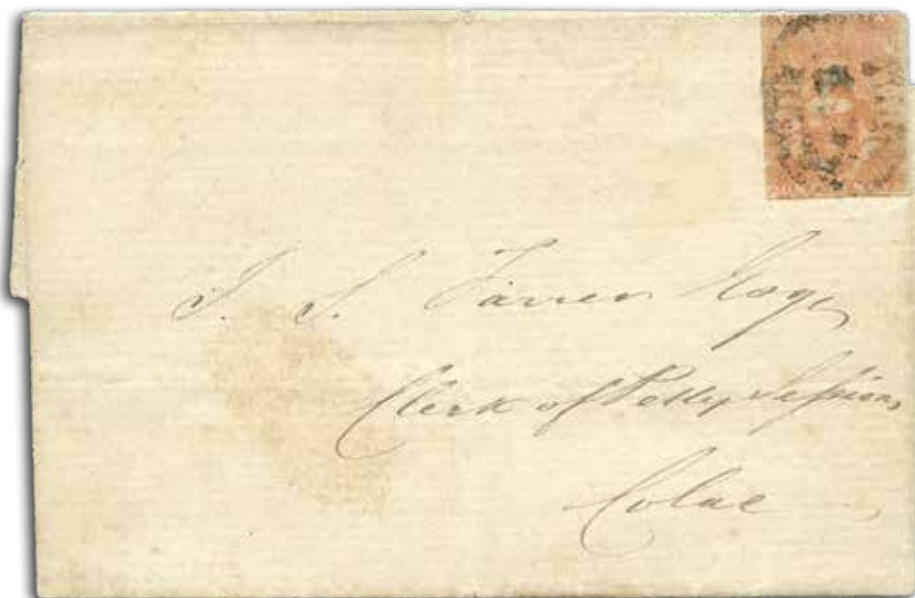 J. S. Farrer Esqr,
Clerk of Petty Sessions
Colac